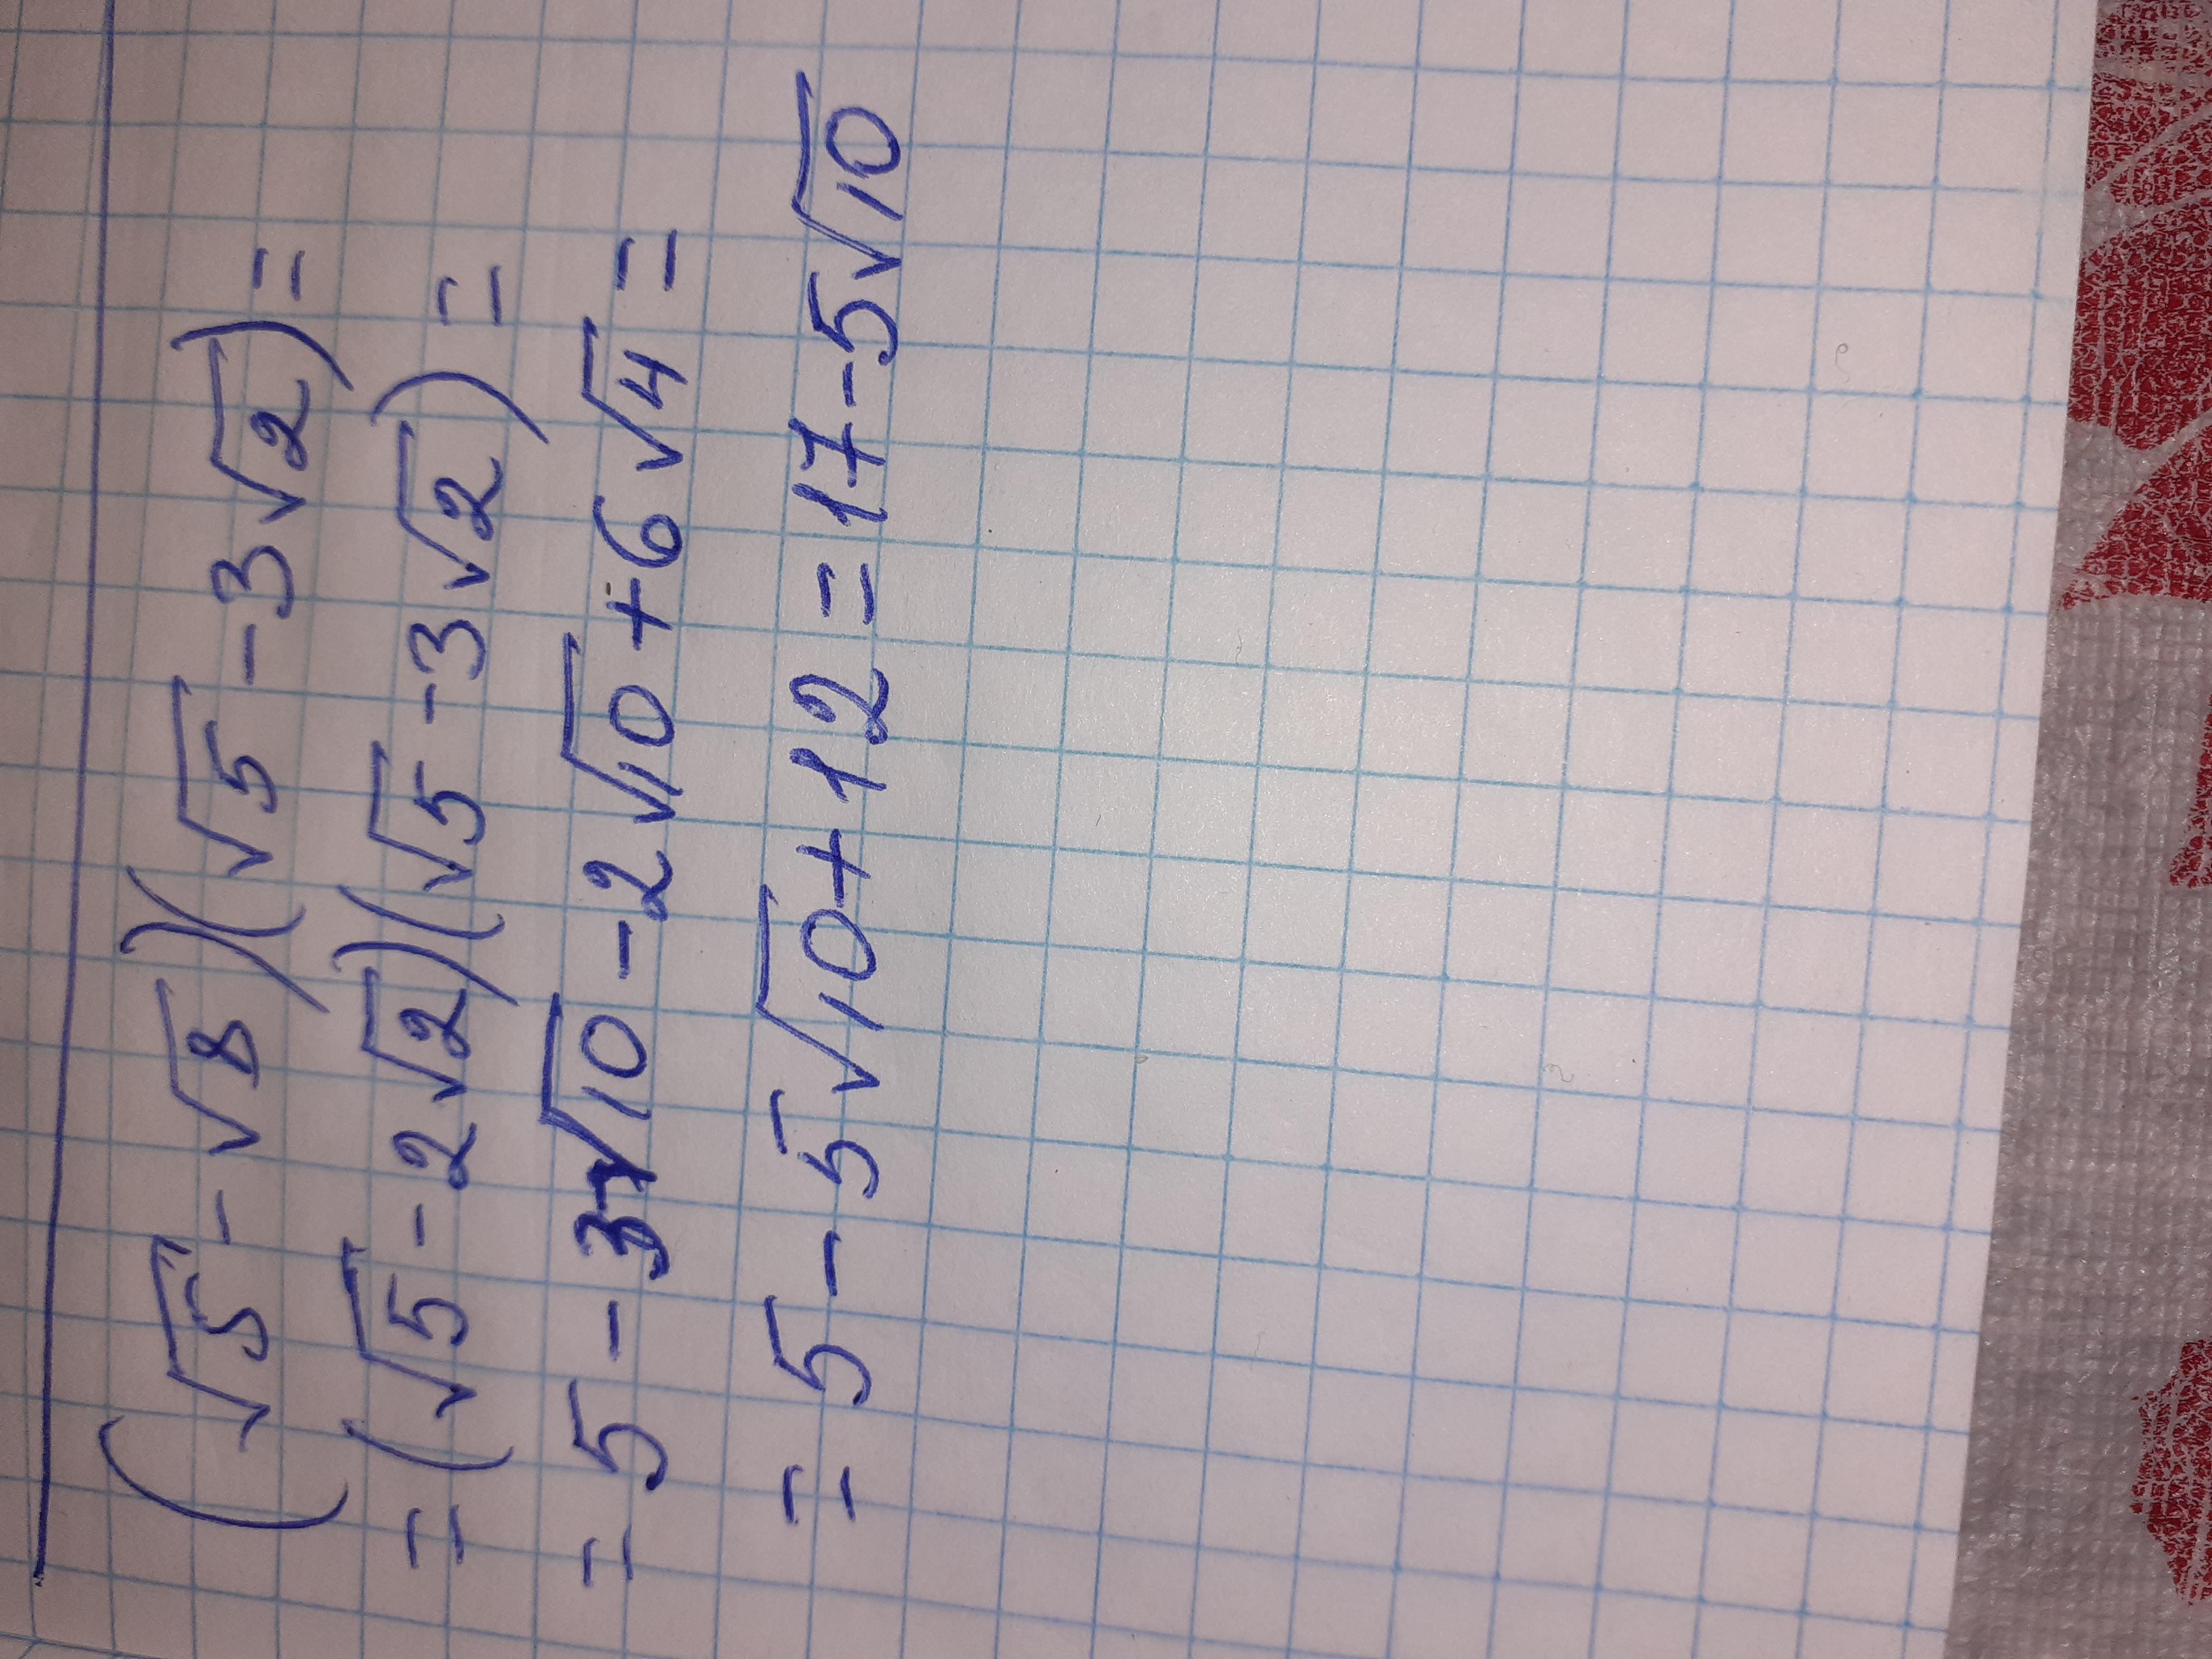 (√5-√8)(√5-3√2)=
=(√5-2√2)(√5-3√2)=
=5-3√10-2√10+6√4=
=5-5√10+12=17-5√10